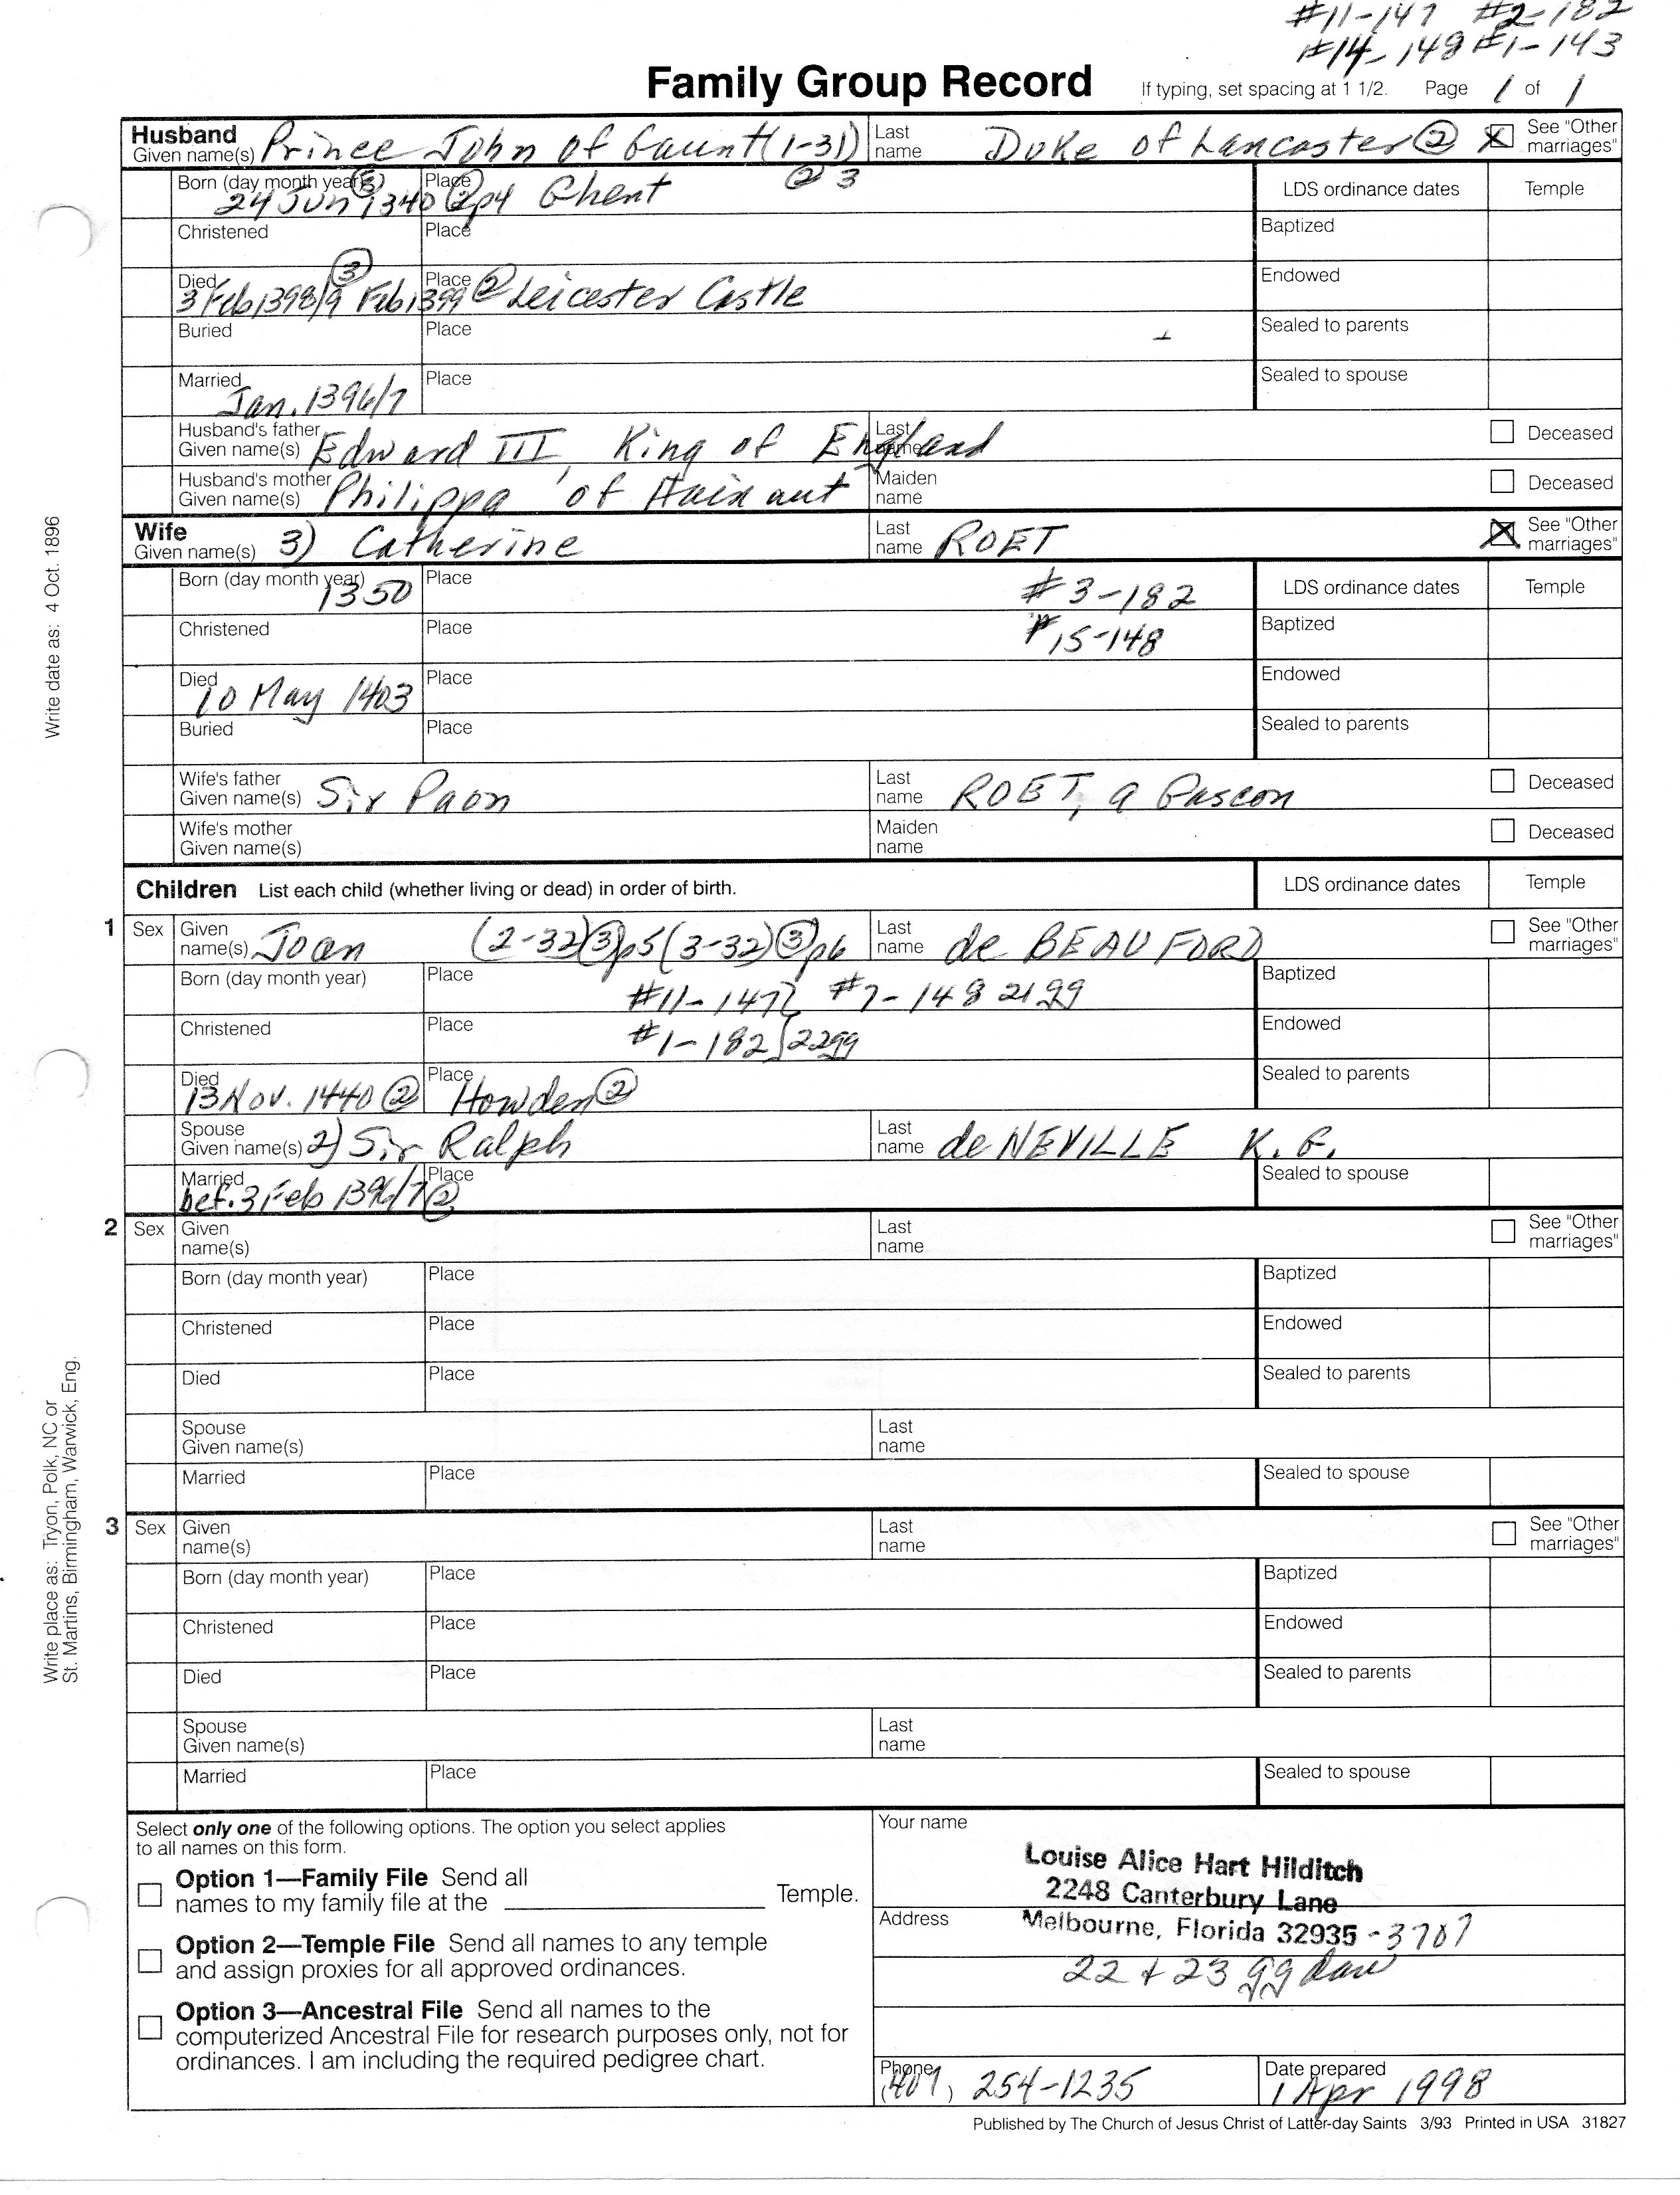 #11-147 #2-182
#14-148 #1-143
Family Group Record If typing, set spacing at 1 1/2. Page 1 of 1
Husband Given name(s) Prince John of Gaunt (1-31) Last name Duke of Lancaster ② X See "Other marriages"
Born (day month year) ③ 24 Jun 1340 Place ② p4 Ghent @ 3 LDS ordinance dates Temple
Christened Place Baptized
Died 3 Feb 1398/9 ③ Feb 1399 Place ② Leicester Castle Endowed
Buried Place Sealed to parents
Married Jan. 1396/7 Place Sealed to spouse
Husband's father Given name(s) Edward III, King of England Last name Deceased
Husband's mother Given name(s) Philippa of Hainaut Maiden name Deceased
Wife Given name(s) 3) Catherine Last name ROET X See "Other marriages"
Born (day month year) 1350 Place #3-182 LDS ordinance dates Temple
Christened Place #15-148 Baptized
Died 10 May 1403 Place Endowed
Buried Place Sealed to parents
Wife's father Given name(s) Sir Paon Last name ROET, a Gascon Deceased
Wife's mother Given name(s) Maiden name Deceased
Children List each child (whether living or dead) in order of birth. LDS ordinance dates Temple
1 Sex Given name(s) Joan (2-32) ③ p5 (3-32) ③ p6 Last name de BEAUFORD See "Other marriages"
Born (day month year) Place #11-147 #7-148 21 gg Baptized
Christened Place #1-182 22gg Endowed
Died 13 Nov. 1440 ② Place Howden ② Sealed to parents
Spouse Given name(s) 2) Sir Ralph Last name de NEVILLE K. G.
Married bef. 3 Feb 1396/7 ② Place Sealed to spouse
2 Sex Given name(s) Last name See "Other marriages"
Born (day month year) Place Baptized
Christened Place Endowed
Died Place Sealed to parents
Spouse Given name(s) Last name
Married Place Sealed to spouse
3 Sex Given name(s) Last name See "Other marriages"
Born (day month year) Place Baptized
Christened Place Endowed
Died Place Sealed to parents
Spouse Given name(s) Last name
Married Place Sealed to spouse
Write date as: 4 Oct. 1896
Write place as: Tryon, Polk, NC or
St. Martins, Birmingham, Warwick, Eng.
Select only one of the following options. The option you select applies
to all names on this form.
Option 1—Family File Send all
names to my family file at the Temple.
Option 2—Temple File Send all names to any temple
and assign proxies for all approved ordinances.
Option 3—Ancestral File Send all names to the
computerized Ancestral File for research purposes only, not for
ordinances. I am including the required pedigree chart.
Your name
Louise Alice Hart Hilditch
2248 Canterbury Lane
Address Melbourne, Florida 32935 - 3707
22 + 23 gg
Phone (407) 254-1235 Date prepared 1 Apr 1998
Published by The Church of Jesus Christ of Latter-day Saints 3/93 Printed in USA 31827